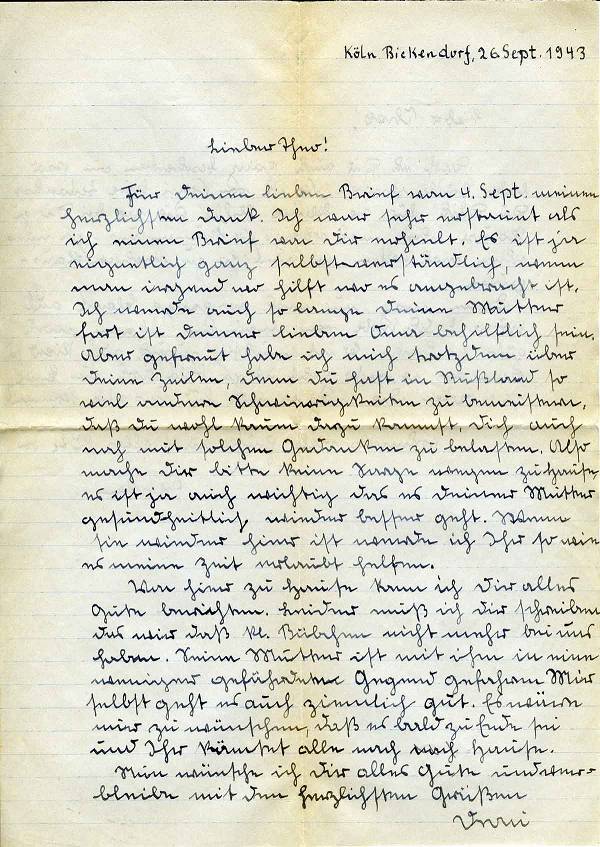 Köln Bickendorf, 26. Sept. 1943
Lieber Theo!
Für Deinen lieben Brief vom 4. Sept. meinen
herzlichsten Dank. Ich war sehr erstaunt als
ich einen Brief von Dir erhielt. Es ist ja
eigentlich ganz selbstverständlich, wenn
man irgend wo hilft wo es angebracht ist.
Ich werde auch so lange Deine Mutter
fort ist Deiner lieben Oma behilflich sein.
Aber gefreut habe ich mich trotzdem über
Deine Zeilen, denn Du hast in Rußland so
viel andere Schwierigkeiten zu bemeistern,
daß Du wohl kaum dazu kommst, Dich auch
noch mit solchen Gedanken zu belasten. Also
mache Dir bitte keine Sorge wegen zu Hause,
es ist ja auch wichtig das es Deiner Mutter
gesundheitlich wieder besser geht. Wenn
sie wieder hier ist werde ich Ihr so wie
es meine Zeit erlaubt helfen.
Von hier zu Hause kann ich Dir alles
Gute berichten. Leider muß ich Dir schreiben
das wir daß kl. Bübchen nicht mehr bei uns
haben. Seine Mutter ist mit ihm in eine
weniger gefährdete Gegend gefahren. Mir
selbst geht es auch ziemlich gut. Es wäre
nur zu wünschen, daß es bald zu Ende sei
und Ihr kämtet alle nach nach Hause.
Nun wünsche ich Dir alles Gute und ver-
bleibe mit den herzlichsten Grüßen